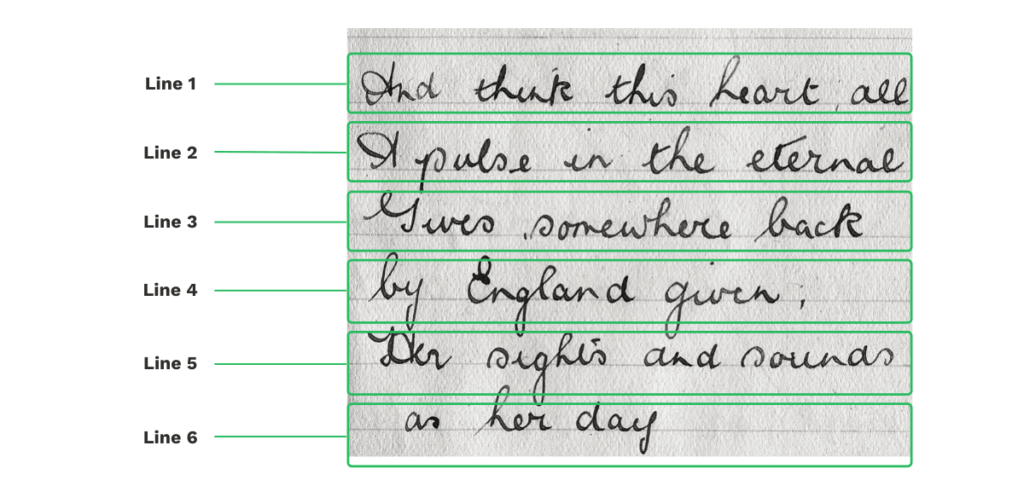 Line 1 And think this heart, all
Line 2 A pulse in the eternal
Line 3 Gives somewhere back
Line 4 by England given;
Line 5 Her sights and sounds
Line 6 as her day